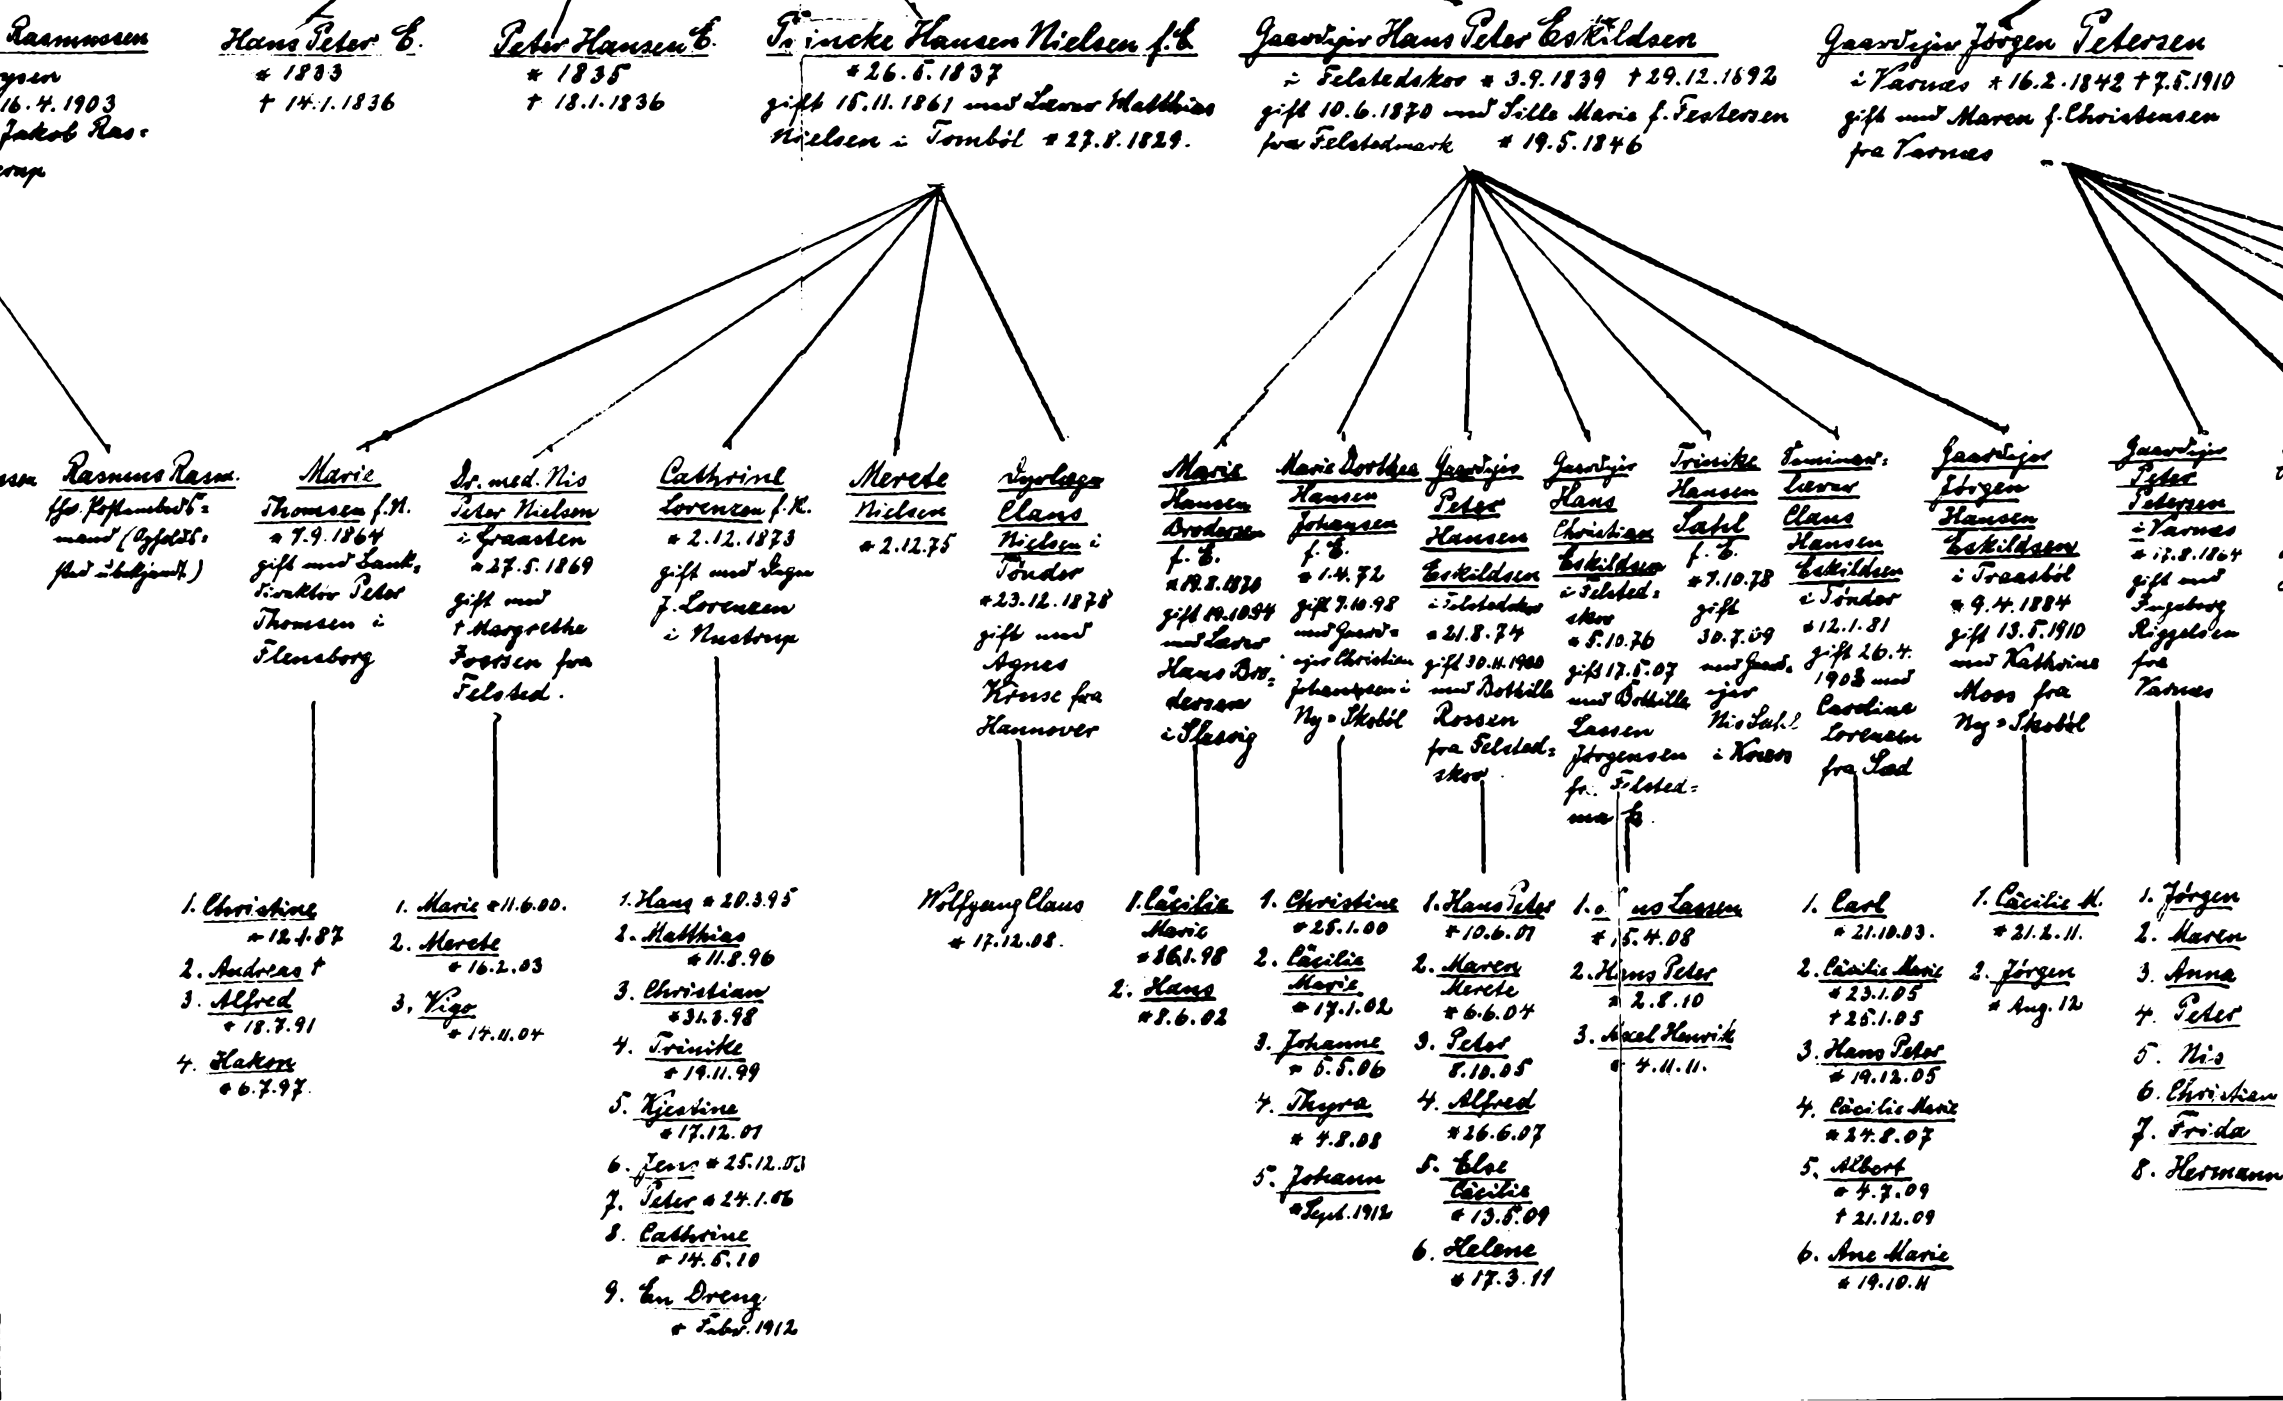 Rasmussen
16.4.1903
Jakob Ras=
Hans Peter E.
* 1833
† 14.1.1836
Peter Hansen E.
* 1835
† 18.1.1836
Trincke Hansen Nielsen f. E.
* 26.5.1837
gift 15.11.1861 med Lærer Matthias
Nielsen i Tombøl * 27.8.1829.
Gaardejer Hans Peter Eskildsen
i Felstedskov * 3.9.1839 † 29.12.1892
gift 10.6.1870 med Sille Marie f. Festersen
fra Felstedmark * 19.5.1846
Gaardejer Jörgen Petersen
i Varnæs * 16.2.1842 † 7.5.1910
gift med Maren f. Christensen
fra Varnæs
Rasmus Rasm.
Marie
Thomsen f. N.
* 7.9.1864
gift med Bank=
direktör Peter
Thomsen i
Flensborg
Dr. med. Nis
Peter Nielsen
i Graasten
* 27.5.1869
gift med
† Margrethe
fra
Felsted.
Cathrine
Lorenzen f. N.
* 2.12.1873
gift med
J. Lorenzen
i Nustrup
Merete
Nielsen
* 2.12.75
Dyrlæge
Claus
Nielsen i
Tönder
* 23.12.1878
gift med
Agnes
Kruse fra
Hannover
Marie
Hansen
Brodersen
f. E.
gift 19.10.94
med Lærer
Hans Bro=
dersen
i Slesvig
Marie Dorthea
Hansen
Johansen
f. E.
* 1.4.72
gift 7.10.98
med Gaard=
ejer Christian
i
Ny=Skobøl
Gaardejer
Peter
Hansen
Eskildsen
i Felstedskov
* 21.8.74
gift 30.11.1900
med Bothilla
Rossen
fra Felsted=
skov
Gaardejer
Hans
Christian
Eskildsen
i Felsted=
skov
* 5.10.76
gift 17.5.07
med Bothilla
Lassen
Jörgensen
fra Felsted=
mark
Trinike
Hansen
Sahl
f. E.
* 7.10.78
gift
30.7.09
med Gaard=
ejer
Nis Sahl
i
Seminar=
lærer
Claus
Hansen
Eskildsen
i Tönder
* 12.1.81
gift 26.4.
1902 med
Caroline
Lorenzen
fra Sæd
Gaardejer
Jörgen
Hansen
Eskildsen
i Traasbøl
* 9.4.1884
gift 13.5.1910
med Kathrine
Moos fra
Ny=Skobøl
Gaardejer
Peter
Petersen
i Varnæs
* 17.8.1864
gift med
Ingeborg
Riggelsen
fra
Varnæs
1. Christine
2. Andreas †
3. Alfred
* 18.7.91
4. Hakon
* 6.7.97.
1. Marie * 11.6.00.
2. Merete
* 16.2.03
3. Vigo
* 14.11.04
1. Hans * 20.3.95
2. Matthias
* 11.8.96
3. Christian
* 31.3.98
4. Trinike
* 19.11.99
5. Kjestine
* 17.12.01
6. Jens * 25.12.03
7. Peter * 24.1.06
8. Cathrine
* 14.5.10
9. En Dreng
* Febr. 1912
Wolfgang Claus
* 17.12.08.
1. Cäcilie
Marie
2. Hans
* 8.6.02
1. Christine
* 25.1.00
2. Cäcilie
Marie
* 17.1.02
3. Johanne
* 5.5.06
4. Thyra
* 4.8.08
5. Johann
* Sept. 1912
1. Hans Peter
* 10.6.01
2. Maren
Merete
* 6.6.04
3. Peter
8.10.05
4. Alfred
* 26.6.07
5. Else
Cäcilie
* 13.5.09
6. Helene
* 17.3.11
1. Lassen
* 5.4.08
2. Hans Peter
* 2.8.10
3. Axel Henrik
* 4.11.11.
1. Carl
* 21.10.03.
2. Cäcilie Marie
* 23.1.05
† 25.1.05
3. Hans Peter
* 19.12.05
4. Cäcilie Marie
* 24.8.07
5. Albert
* 4.7.09
† 21.12.09
6. Ane Marie
* 19.10.11
1. Cäcilie M.
* 21.2.11.
2. Jörgen
* Aug. 12
1. Jörgen
2. Maren
3. Anna
4. Peter
5. Nis
6. Christian
7. Frida
8. Hermann